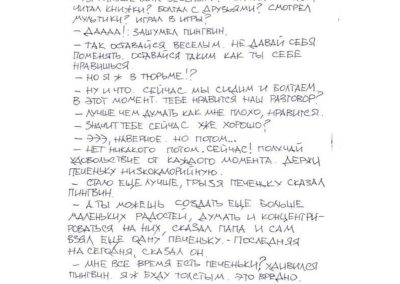 ЧИТАЛ КНИЖКИ? БОЛТАЛ С ДРУЗЬЯМИ? СМОТРЕЛ
МУЛЬТИКИ? ИГРАЛ В ИГРЫ?
– ДАААА!: ЗАШУМЕЛ ПИНГВИН.
– ТАК ОСТАВАЙСЯ ВЕСЕЛЫМ. НЕ ДАВАЙ СЕБЯ
ПОМЕНЯТЬ. ОСТАВАЙСЯ ТАКИМ КАК ТЫ СЕБЕ
НРАВИШЬСЯ.
– НО Я Ж В ТЮРЬМЕ!?
– НУ И ЧТО. СЕЙЧАС МЫ СИДИМ И БОЛТАЕМ
В ЭТОТ МОМЕНТ. ТЕБЕ НРАВИТСЯ НАШ РАЗГОВОР?
– ЛУЧШЕ ЧЕМ ДУМАТЬ КАК МНЕ ПЛОХО, НРАВИТСЯ.
– ЗНАЧИТ ТЕБЕ СЕЙЧАС УЖЕ ХОРОШО?
– ЭЭЭ, НАВЕРНОЕ. НО ПОТОМ...
– НЕТ НИКАКОГО ПОТОМ. СЕЙЧАС! ПОЛУЧАЙ
УДОВОЛЬСТВИЕ ОТ КАЖДОГО МОМЕНТА. ДЕРЖИ
ПЕЧЕНЬКУ НИЗКОКАЛОРИЙНУЮ.
– СТАЛО ЕЩЕ ЛУЧШЕ, ГРЫЗЯ ПЕЧЕНЬКУ СКАЗАЛ
ПИНГВИН.
– А ТЫ МОЖЕШЬ СОЗДАТЬ ЕЩЕ БОЛЬШЕ
МАЛЕНЬКИХ РАДОСТЕЙ, ДУМАТЬ И КОНЦЕНТРИ-
РОВАТЬСЯ НА НИХ, СКАЗАЛ ПАПА И САМ
ВЗЯЛ ЕЩЕ ОДНУ ПЕЧЕНЬКУ. – ПОСЛЕДНЯЯ
НА СЕГОДНЯ, СКАЗАЛ ОН
– МНЕ ВСЕ ВРЕМЯ ЕСТЬ ПЕЧЕНЬКИ? УДИВИЛСЯ
ПИНГВИН. Я Ж БУДУ ТОЛСТЫМ. ЭТО ВРЕДНО.